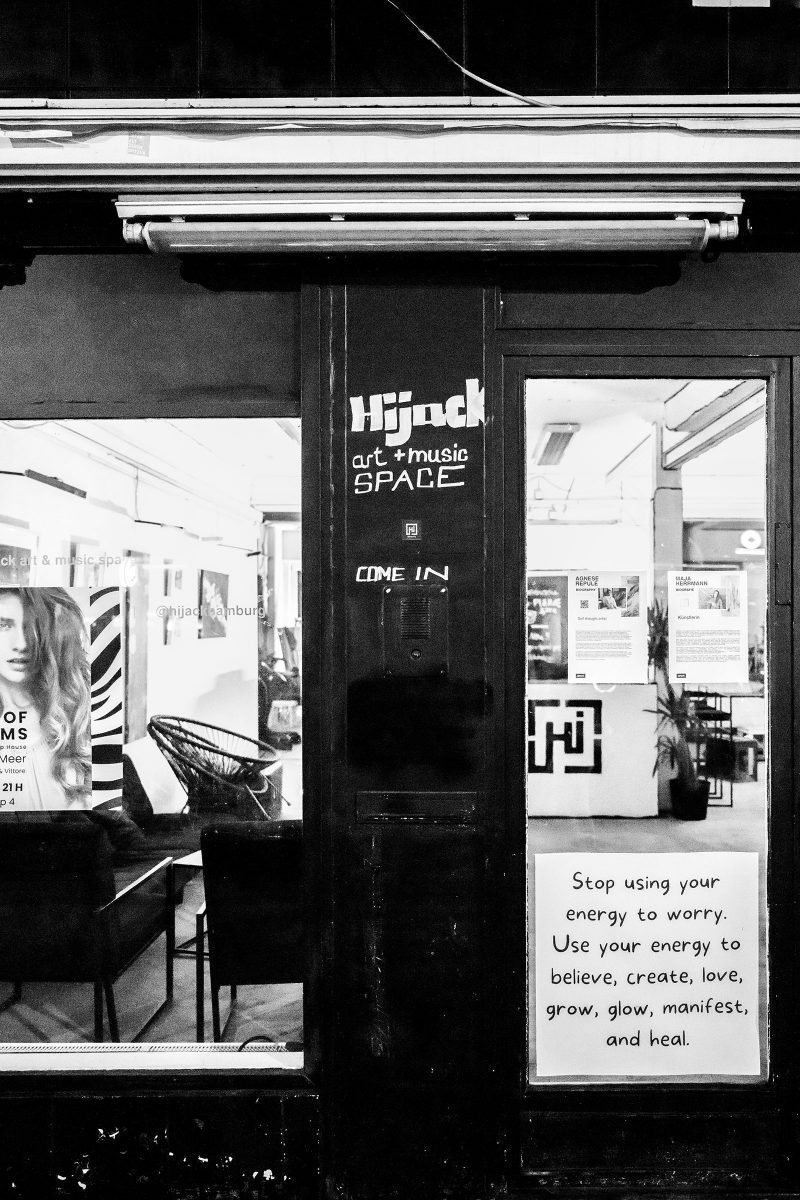 Hijack
art + music
SPACE
COME IN
ck art & music spa
@hijackhamburg
OF
MS
p House
Meer
& Vittore
21 H
p 4
AGNESE
REPULE
BIOGRAPHY
Self thought artist
MAJA
HERRMANN
BIOGRAFIE
Künstlerin
Hi
Stop using your
energy to worry.
Use your energy to
believe, create, love,
grow, glow, manifest,
and heal.